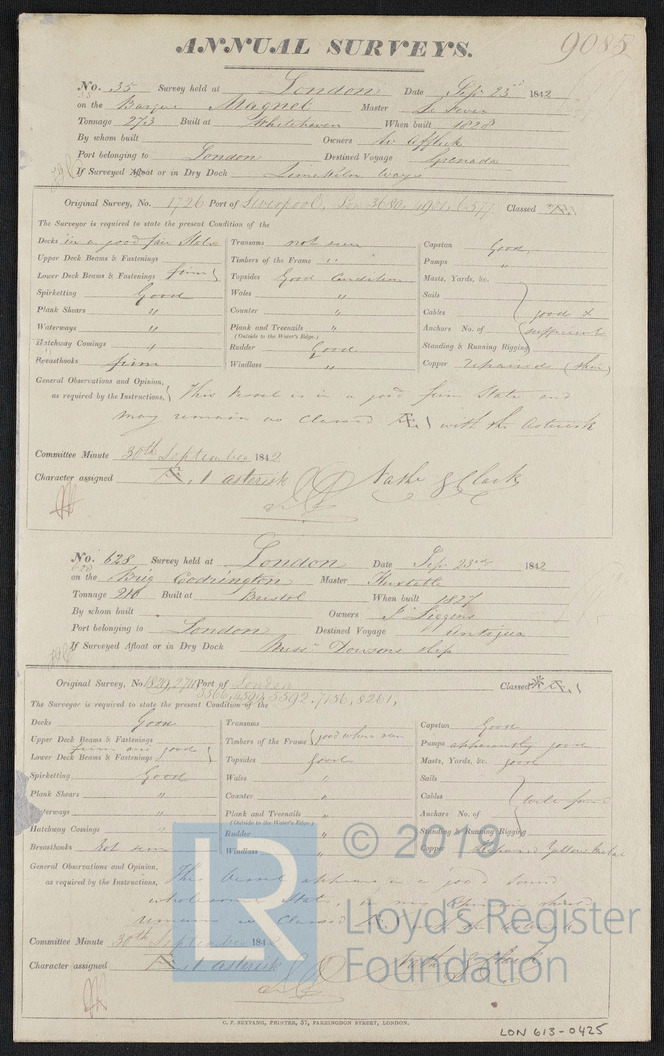 ANNUAL SURVEYS. 9085
No. 35 Survey held at London Date Sep. 23d 1842
on the Barque Magnet Master Le Feuvre
Tonnage 273 Built at Whitehaven When built 1828
By whom built Owners W Affleck
Port belonging to London Destined Voyage Grenada
If Surveyed Afloat or in Dry Dock Limekiln
Original Survey, No. 1726 Port of Liverpool, Lon 3680, 4901, 6577 Classed
The Surveyor is required to state the present Condition of the
Decks in a good fair State Transoms not seen Capstan Good
Upper Deck Beams & Fastenings Timbers of the Frame " Pumps "
Lower Deck Beams & Fastenings firm Topsides Good Condition Masts, Yards, &c.
Spirketting Good Wales " Sails
Plank Shears " Counter " Cables good &
Waterways " Plank and Treenails " Anchors No. of
(Outside to the Water's Edge.)
Hatchway Comings " Rudder Good Standing & Running Rigging
Breasthooks firm Windlass " Copper repaired
General Observations and Opinion, This Vessel is in a good firm State and
as required by the Instructions, may remain as Classed Æ.1 with the Asterisk
Committee Minute 30th September 1842
Character assigned Æ.1 asterisk Nathl S Clark
No. 628 Survey held at London Date Sep. 23rd 1842
on the Brig Codrington Master Thustle
Tonnage 216 Built at Bristol When built 1827
By whom built Owners Liggins
Port belonging to London Destined Voyage Antigua
If Surveyed Afloat or in Dry Dock Messrs Dowsons slip
Original Survey, No. 1839, 2711 Port of London Classed * Æ.1
3366, 4394, 5392, 7136, 8261,
The Surveyor is required to state the present Condition of the
Decks Good Transoms Capstan Good
Upper Deck Beams & Fastenings Timbers of the Frame good where seen Pumps apparently good
firm and good
Lower Deck Beams & Fastenings Topsides Good Masts, Yards, &c. good
Spirketting Good Wales " Sails
Plank Shears " Counter " Cables
Waterways " Plank and Treenails " Anchors No. of
(Outside to the Water's Edge.)
Hatchway Comings " Rudder " Standing & Running Rigging
Breasthooks Not seen Windlass " Copper Yellow Metal
General Observations and Opinion, This Vessel appears in a good sound
as required by the Instructions, wholesome State in my Opinion should
remain as Classed Æ.1
Committee Minute 30th September 1842
Character assigned Æ.1 asterisk Nathl S Clark
C. F. SEYFANG, PRINTER, 57, FARRINGDON STREET, LONDON.
LON 613-0425
LR © 2019
Lloyd's Register
Foundation